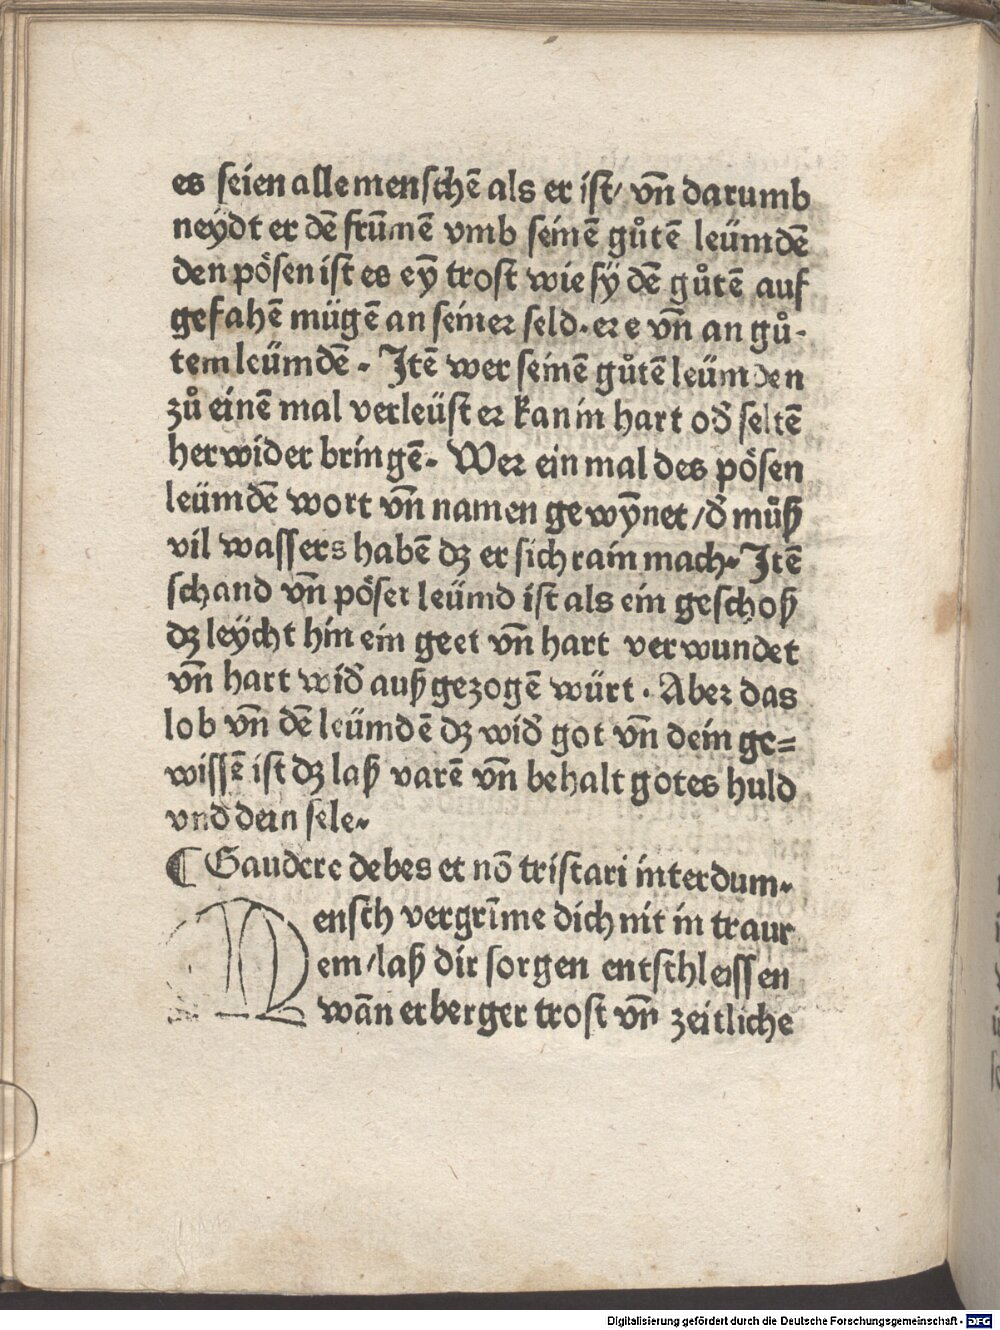 es seien alle menschē als er ist/ vn̄ darumb
neydt er dē frūmē vmb seinē gůtē leümdē
den pösen ist es eȳ trost wie sÿ dē gůtē auf
gefahē mügē an seiner seld. ere vn̄ an gů-
tem leümdē. Itē wer seinē gůtē leümden
zů einē mal verleüst er kan in hart od̕ seltē
herwider bringē. Wer ein mal des pösen
leümdē wort vn̄ namen gewȳnet/d̕ můß
vil wassers habē dz er sich rain mach. Itē
schand vn̄ pöser leümd ist als ein geschoß
dz leycht hin ein geet vn̄ hart verwundet
vn̄ hart wid̕ außgezogē würt. Aber das
lob vn̄ dē leümdē dz wid̕ got vn̄ dein ge=
wissē ist dz laß varē vn̄ behalt gotes huld
vnd dein sele.
¶ Gaudere debes et nō tristari interdum.
Mensch vergrīme dich nit in traur
em/laß dir sorgen entschleissen
wān erberger trost vn̄ zeitliche
Digitalisierung gefördert durch die Deutsche Forschungsgemeinschaft - DFG